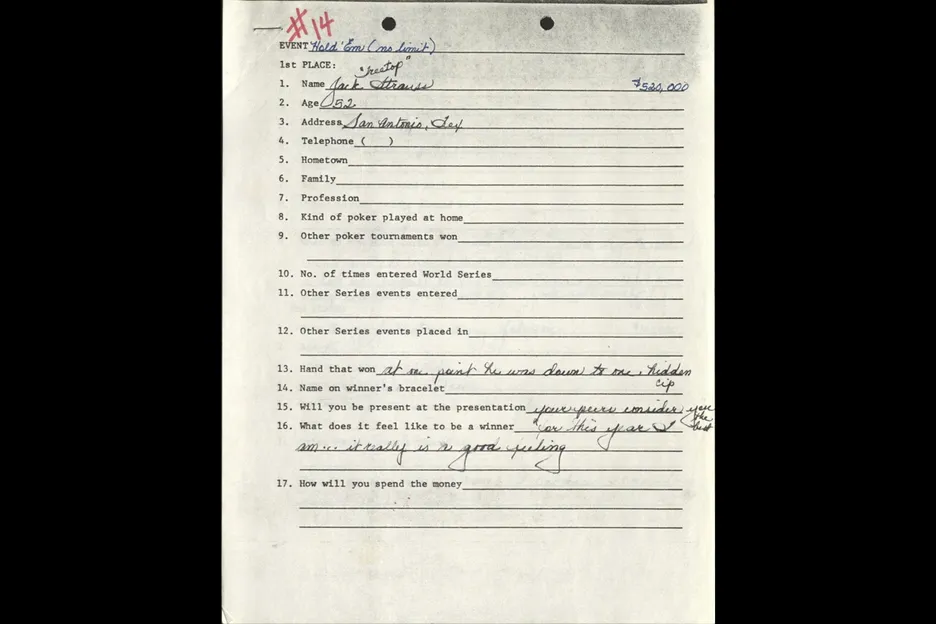 #14
EVENT Hold 'Em (no limit)
1st PLACE: "Treetop"
1. Name Jack Strauss $520,000
2. Age 52
3. Address San Antonio, Tex
4. Telephone ( )
5. Hometown
6. Family
7. Profession
8. Kind of poker played at home
9. Other poker tournaments won
10. No. of times entered World Series
11. Other Series events entered
12. Other Series events placed in
13. Hand that won at one point he was down to one, hidden
cip
14. Name on winner's bracelet
15. Will you be present at the presentation your peers consider you
the
best
16. What does it feel like to be a winner "for this year I
am... it really is a good feeling
17. How will you spend the money